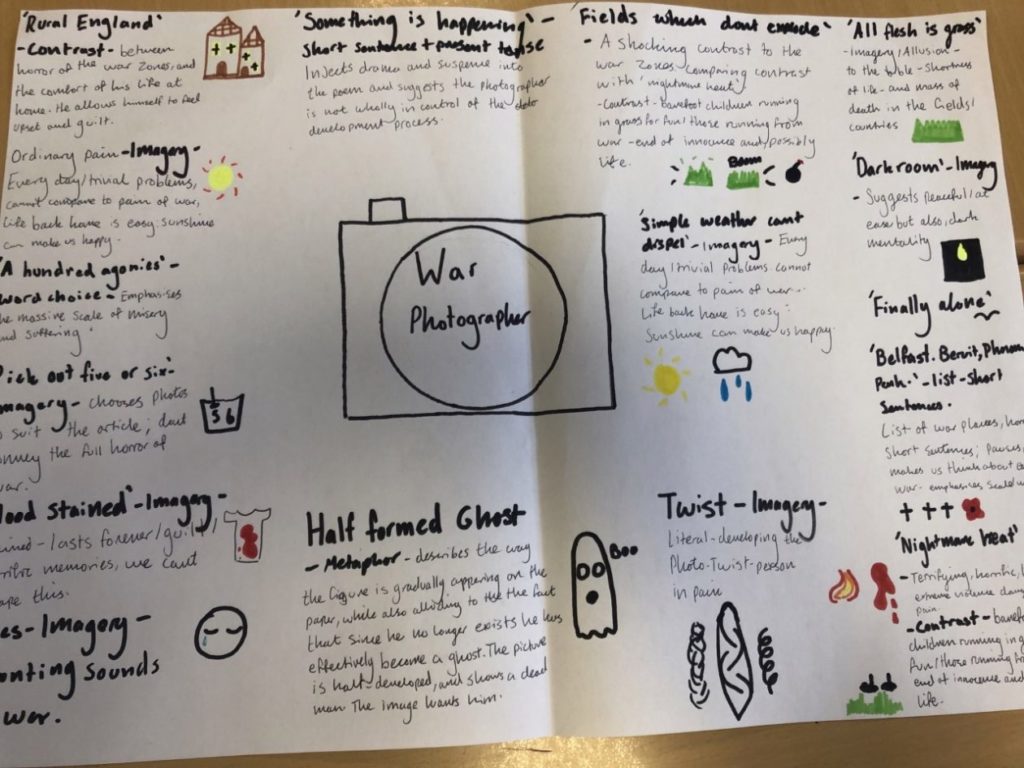 'Rural England'
- Contrast - between
horror of the war zones, and
the comfort of his life at
home. He allows himself to feel
upset and guilt.
Ordinary pain - Imagery -
Every day/trivial problems,
cannot compare to pain of war,
life back home is easy: sunshine
can make us happy.
'A hundred agonies' -
word choice - Emphasises
the massive scale of misery
and suffering.
Pick out five or six -
Imagery - chooses photos
to suit the article; dont
the full horror of
war.
5 6
Blood stained' - Imagery -
- lasts forever/guilt/
memories, we cant
this.
- Imagery -
sounds
war.
'Something is happening' -
Short sentence + present tense
Injects drama and suspense into
the poem and suggests the photographer
is not wholly in control of the
development process.
War
Photographer
Half formed Ghost
- Metaphor - describes the way
the figure is gradually appering on the
paper, while also alluding to the fact
that since he no longer exists he has
effectively become a ghost. The picture
is half-developed, and shows a dead
man. The image haunts him.
Boo
'Fields which dont explode'
- A shocking contrast to the
war zones, comparing contrast
with 'nightmare heat'
- Contrast - barefoot children running
in grass for fun/those running from
war - end of innocence and possibly
life.
Boom
'Simple weather cant
dispel' - Imagery - Every
day/trivial problems cannot
compare to pain of war -
Life back home is easy:
Sunshine can make us happy.
Twist - Imagery -
Literal - developing the
Photo - Twist - person
in pain
'All flesh is grass'
- Imagery/Allusion -
to the bible - shortness
of life - and mass of
death in the fields/
countries
'Darkroom' - Imagery
- Suggests peaceful/at
ease but also, dark
mentality
'Finally alone'
'Belfast. Beruit, Phnom
Penh.' - list - short
Sentences.
List of war places,
short sentences; pauses,
makes us think about
war - emphasises
'Nightmare heat'
- Terrifying, horrific,
extreme violence
pain.
- Contrast -
children running in
fun/those running
end of innocence and
life.